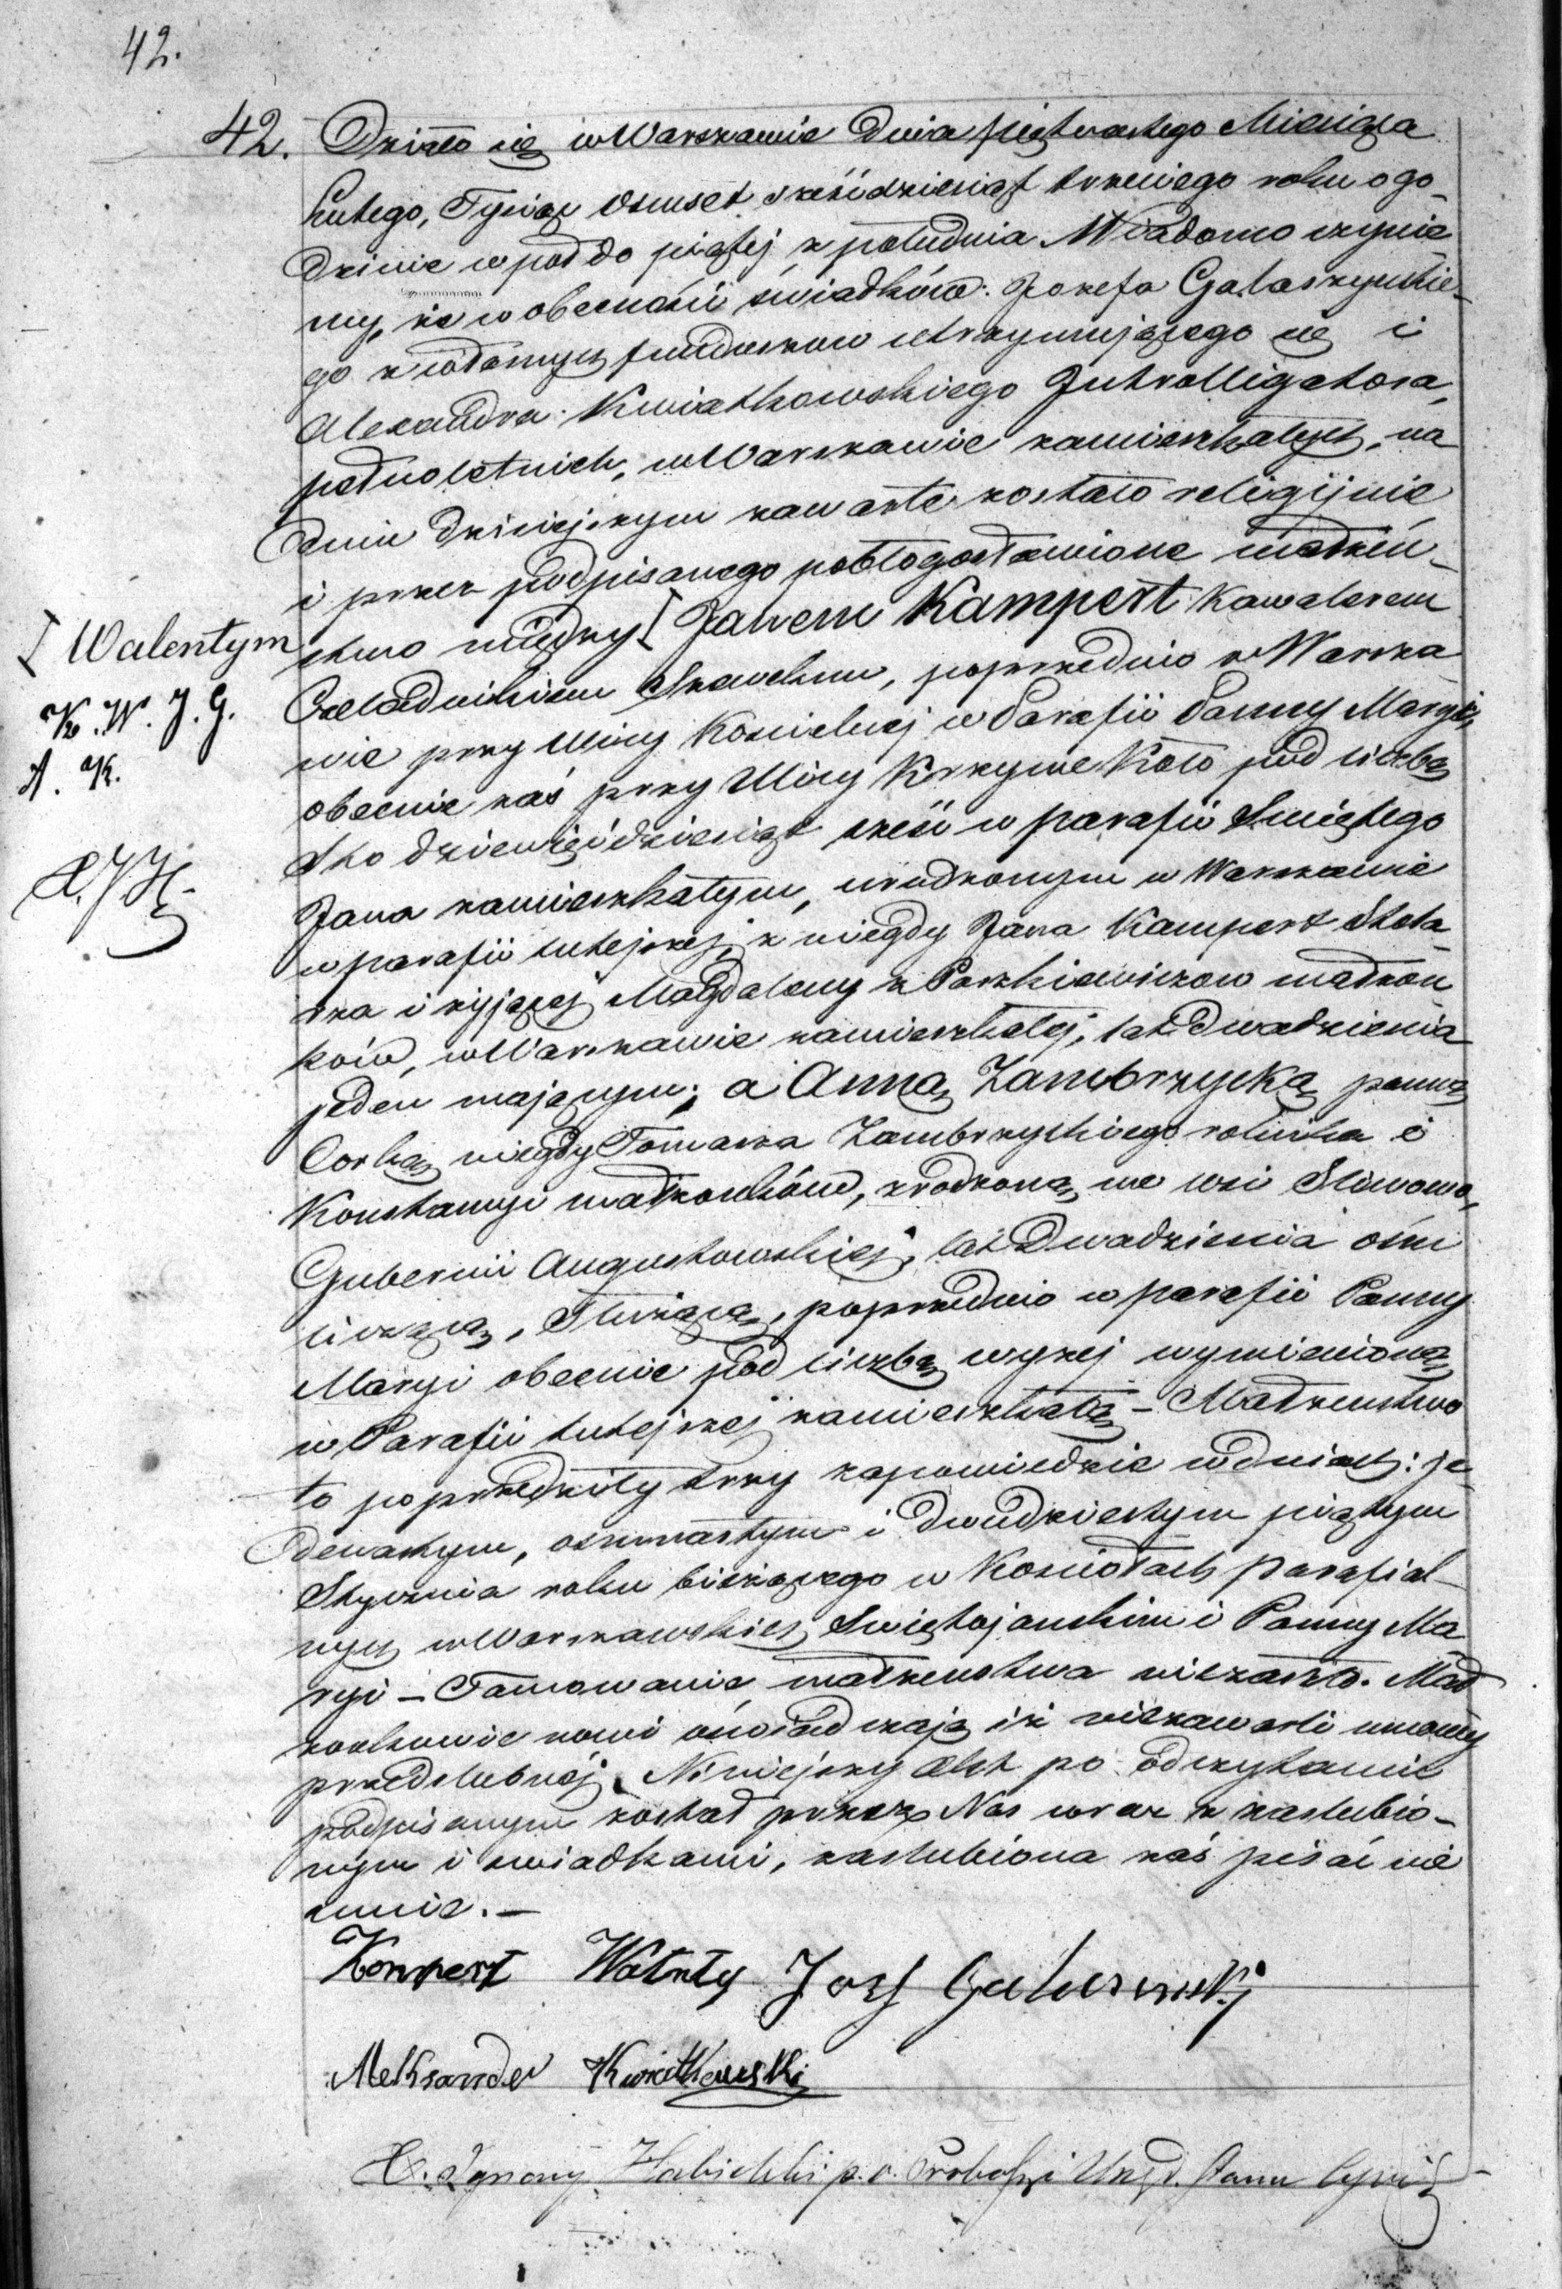 42.
42. Działo się w Warszawie dnia piętnastego Miesiąca
Lutego, Tysiąc Osmset sześćdziesiąt trzeciego roku o go-
dzinie wpół do piątej z południa Wiadomo czynie-
my, że w obecności świadków: Jozefa Gałaszyńskie-
go z własnych funduszow utrzymującego się i
Alexandra Kwiatkowskiego Introlligatora,
pełnoletnich, w Warszawie zamieszkałych, na
dniu dzisiejszym zawarte zostało religijnie
i przez podpisanego pobłogosławione małżeń-
stwo między [ Janem Kampert Kawalerem
[ Walentym
K. W. J. G.
A. K.
X. J. H.
Czeladnikiem Szewckim, poprzednio w Warsza
wie przy Ulicy Koscielnej w Parafii Panny Maryi,
obecnie zaś przy Ulicy Krzywe Koło pod liczbą
Sto dziewięćdziesiąt sześć w parafii Swiętego
Jana zamieszkałym, urodzonym w Warszawie
w parafii tutejszej, z niegdy Jana Kampert Stola-
rza i żyjącej Magdaleny z Paszkiewiczow małżon-
ków, w Warszawie zamieszkałej, lat dwadzieścia
jeden mającym; a Anną Zambrzycką panną
Corką niegdy Tomasza Zambrzyckiego rolnika i
Konstancyi małżonków, zrodzoną we wsi Sliwowo,
Gubernii Augustowskiej, lat Dwadzieścia ośm
liczącą, Służącą, poprzednio w parafii Panny
Maryi obecnie pod liczbą wyżej wymienioną
w Parafii tutejszej zamieszkałą – Małżeństwo
to poprzedziły trzy zapowiedzie w dniach: je-
denastym, osmnastym i dwudziestym piątym
Stycznia roku bieżącego w Kosciołach parafial-
nych w Warszawskich Swiętojanskim i Panny Ma-
ryi – Tamowanie małżeństwa nie zaszło. Mał
żonkowie nowi oświadczają iż nie zawarli umowy
przedslubnéj. Niniejszy Akt po odczytaniu
podpisanym został przez Nas wraz z zaslubio-
nym i swiadkami, zaslubiona zaś pisać nie
umie. –
Kampert Walenty Jozef
Aleksander Kwiatkowski
X. Ignacy p. o. Proboszcz i Urzd. Stanu Cywil